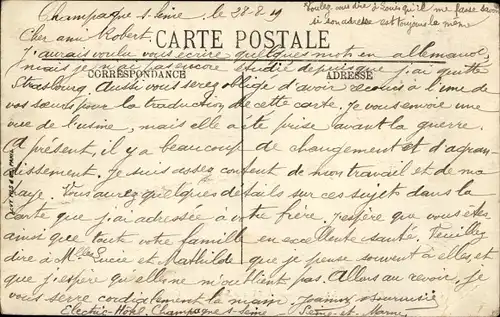 Champagne s. Seine, le 28-8-19
Voulez vous dire à Louis qu'il me fasse savoir
si son adresse est toujours la même
Cher ami Robert.
CARTE POSTALE
J'aurais voulu vous écrire quelques mots en allemand,
mais je n'ai pas encore étudié depuis que j'ai quitté
CORRESPONDANCE
ADRESSE
Strasbourg. Aussi vous serez obligé d'avoir recours à l'une de
vos sœurs pour la traduction de cette carte. Je vous envoie une
vue de l'usine, mais elle a été prise avant la guerre.
A présent, il y a beaucoup de changement et d'agran-
dissement. Je suis assez content de mon travail et de ma
paye. Vous aurez quelques détails sur ces sujets dans la
carte que j'ai adressée à votre frère. J'espère que vous êtes
ainsi que toute votre famille en excellente santé. Veuillez
dire à Melles Lucie et Mathilde que je pense souvent à elles, et
que j'espère qu'elles ne m'oublient pas. Allons au revoir, je
vous serre cordialement la main,
Electric-Hôtel Champagne s-Seine Seine-et-Marne